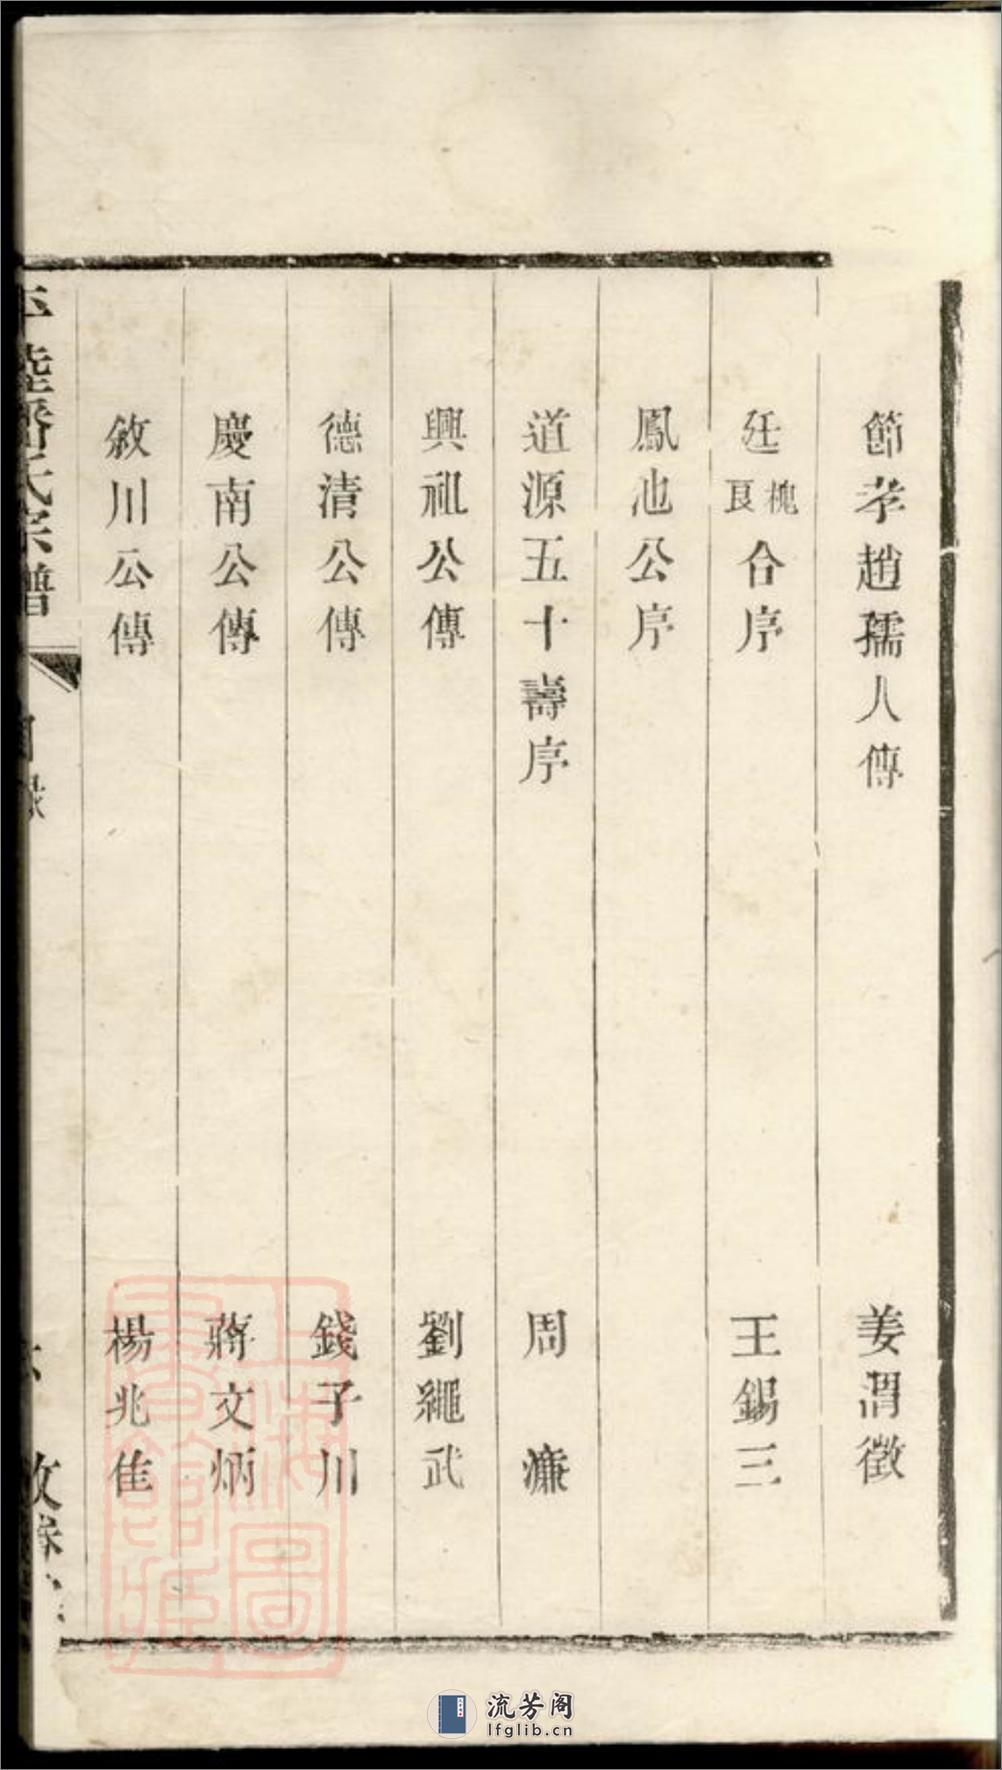 節孝趙孺人傳 姜渭徵
廷槐艮合序 王錫三
鳳池公序
道源五十壽序 周濂
興祖公傳 劉繩武
德清公傳 錢子川
慶南公傳 蔣文炳
敘川公傳 楊兆隹
氏宗譜
目錄
上海圖書館藏
流芳阁
lfglib.cn